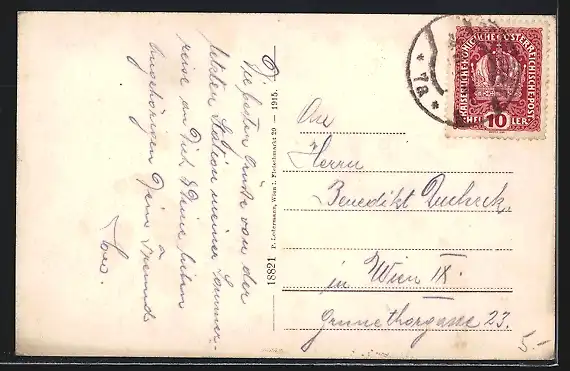 Die besten Grüße von der
letzten Station meiner Sommer-
reise an Dich & Deine lieben
Angehörigen Dein Freund
18821 P. Ledermann, Wien I. Fleischmarkt 20 — 1915.
An
Herrn
Benedikt
in Wien IX.
Grünethorgasse 23.
KAISERLICHE KÖNIGLICHE ÖSTERREICHISCHE POST
HELLER 10
* 7a *
5.-